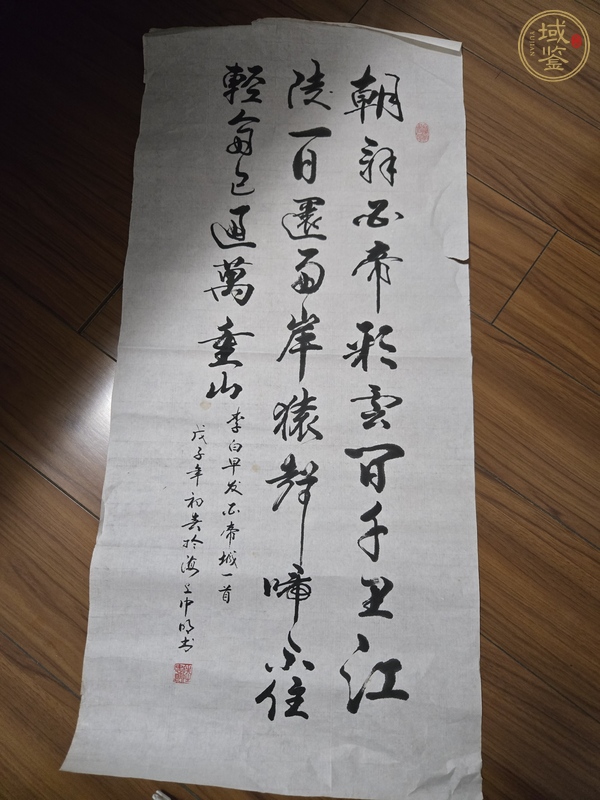 朝辞白帝彩雲间千里江
陵一日還两岸猿聲啼不住
輕舟已過萬重山
李白早发白帝城一首
戊子年初於海上中明书
域鉴
YUJIAN